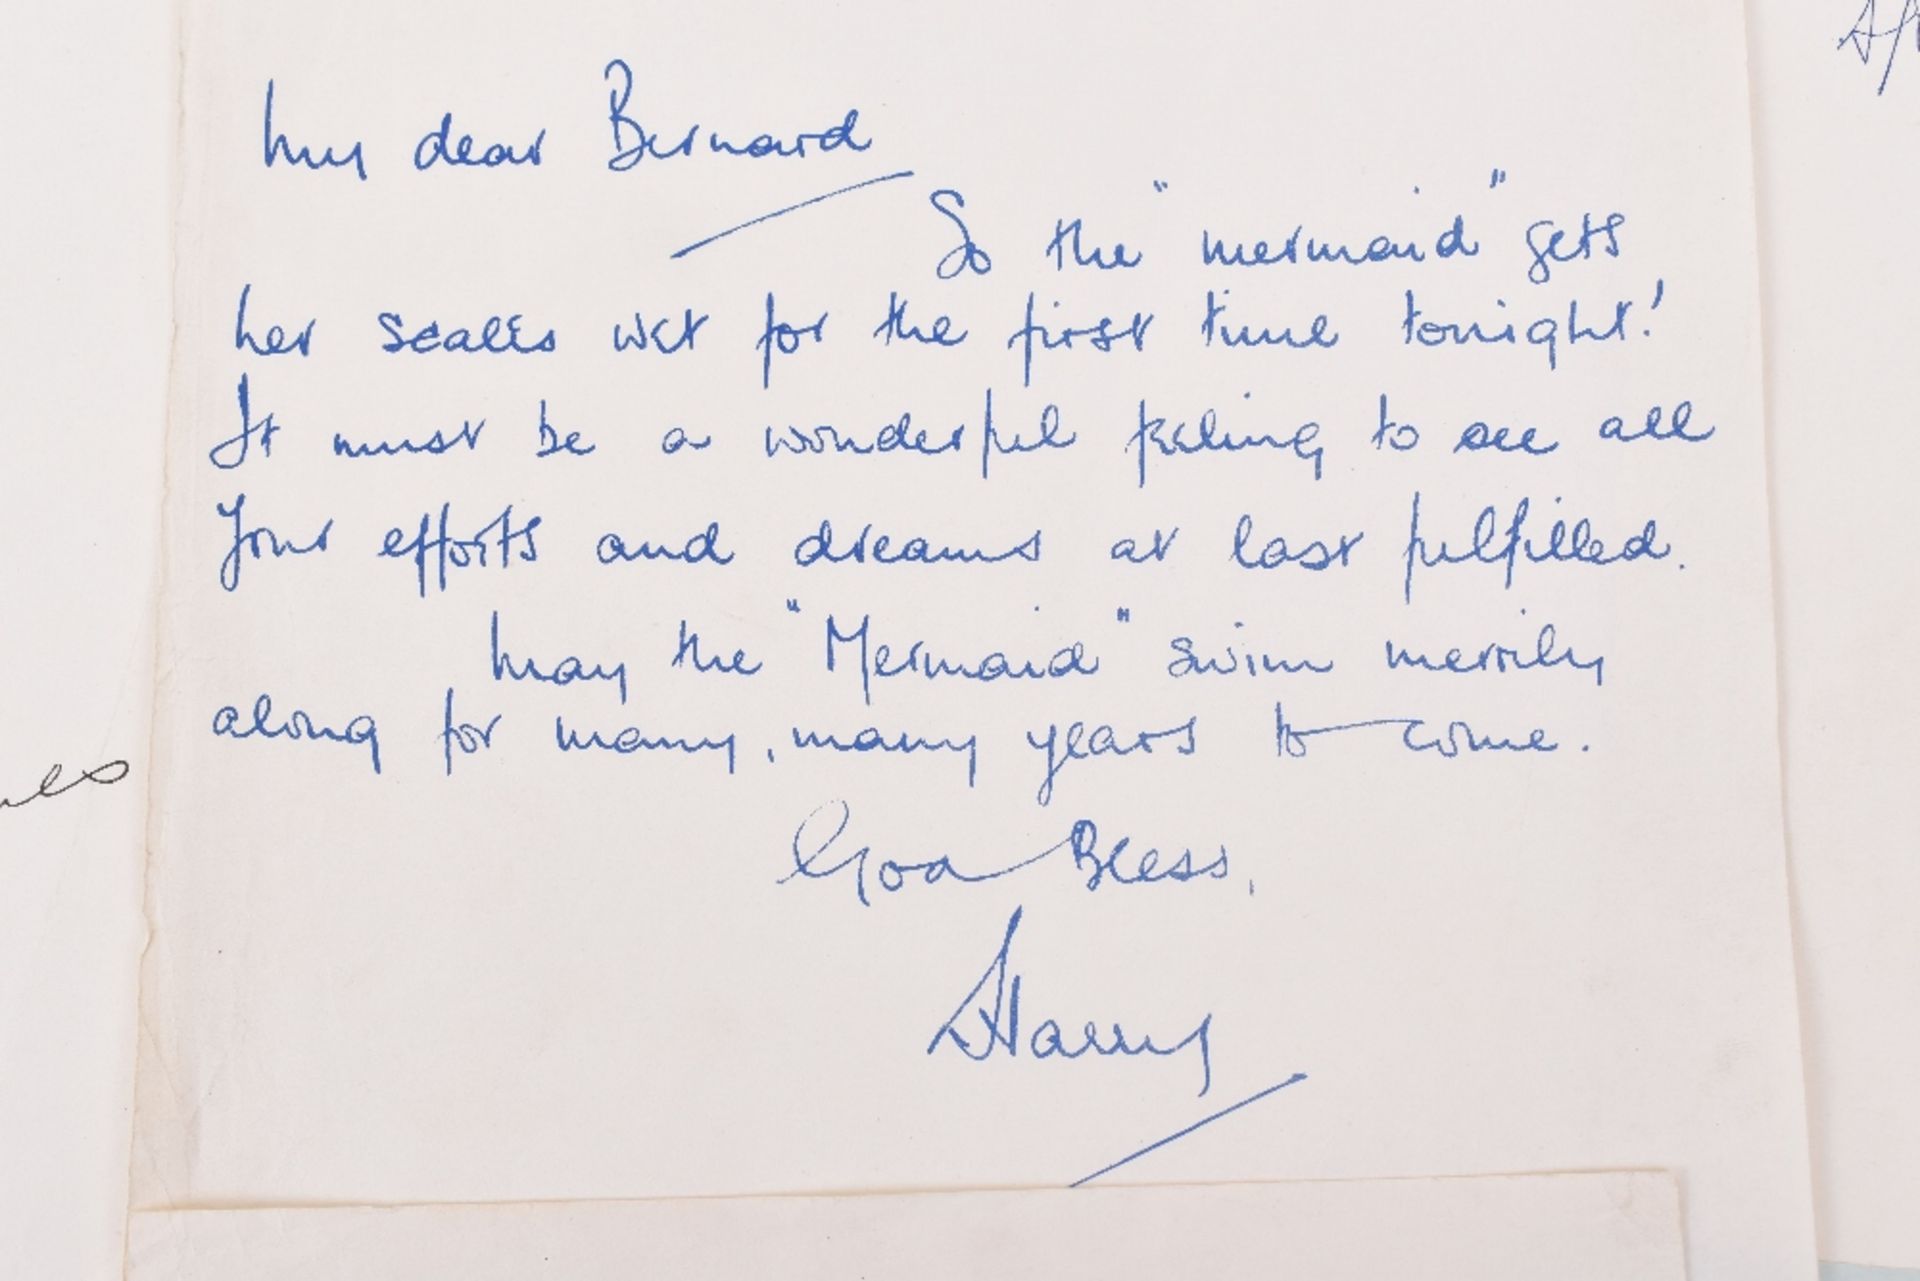 My dear Bernard
So the "mermaid" gets
her scales wet for the first time tonight!
It must be a wonderful feeling to see all
your efforts and dreams at last fulfilled.
May the "Mermaid" swim merrily
along for many, many years to come.
God Bless,
Harry